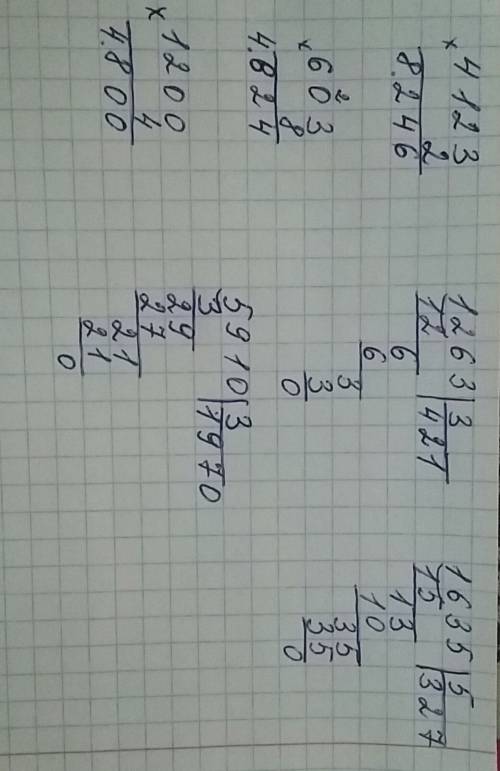 × 4123
2
8.246
× 60²3
8
4.824
× 1200
4
4.800
1263 | 3
12 | 421
6
6
3
3
0
5910 | 3
3 | 1970
29
27
21
21
0
1635 | 5
15 | 327
13
10
35
35
0